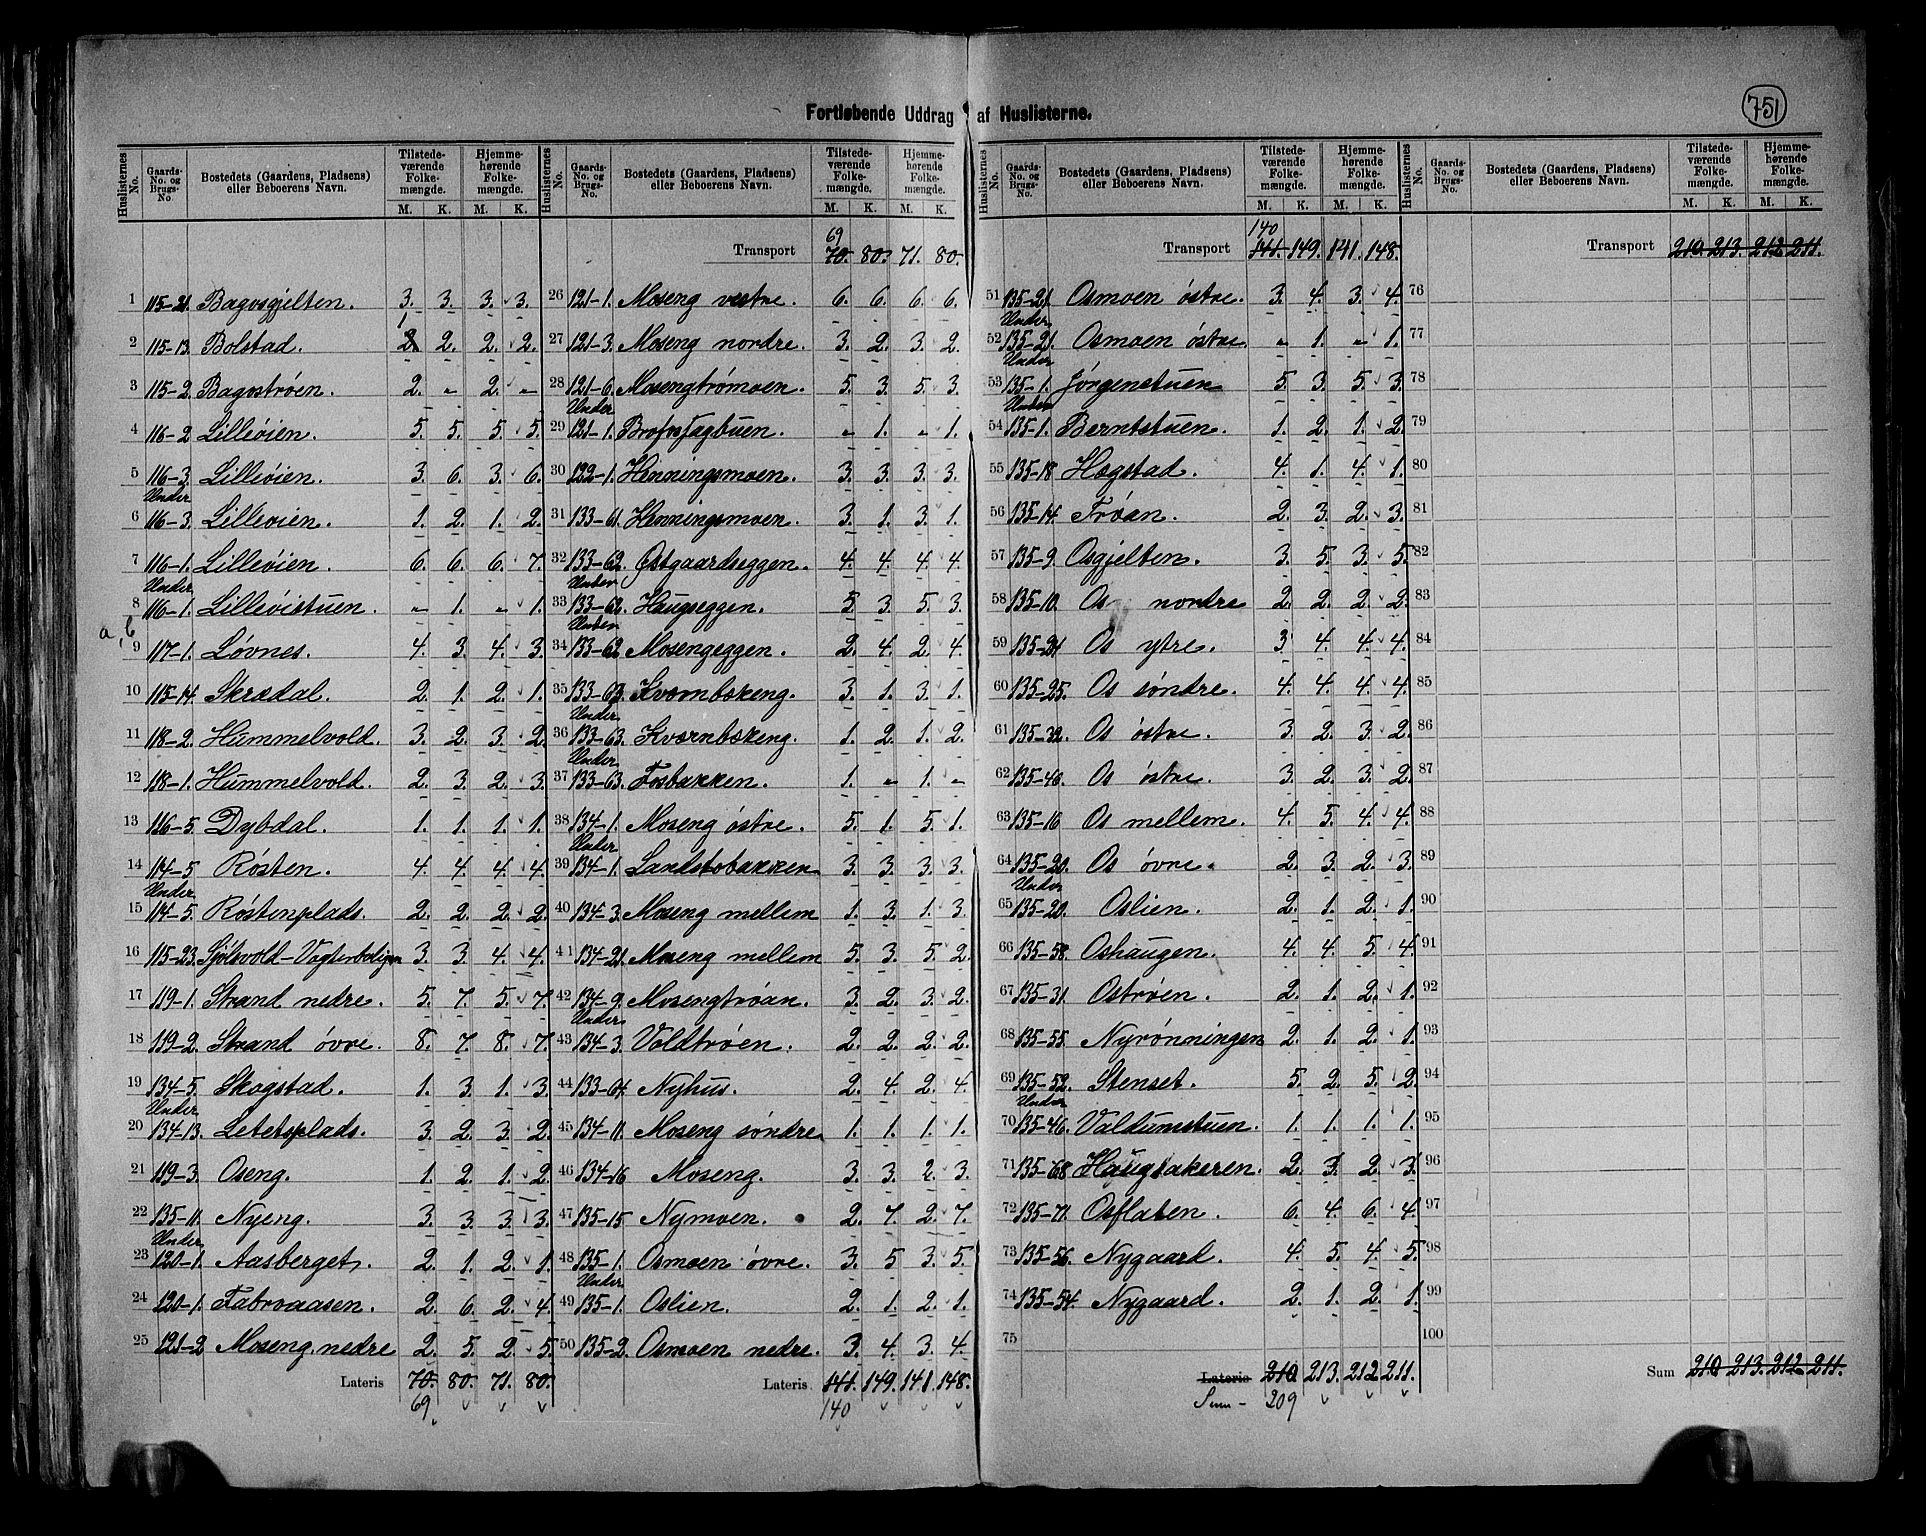 751
Fortløbende Uddrag af Huslisterne.
Huslisternes No. Gaards-No. og Brugs-No. Bostedets (Gaardens, Pladsens) eller Beboerens Navn. Tilstedeværende Folkemængde. M. K. Hjemmehørende Folkemængde. M. K.
1 115-21. Bagosgjelten. 3. 3. 3. 3.
2 115-13. Bolstad. 2. 1 2. 2. 2.
3 115-2. Bagostrøen. 2. „ 2. „
4 116-2 Lilleøien. 5. 5. 5. 5.
5 116-3. Lilleøien. 3. 6. 3. 6.
6 Under 116-3. Lilleøien. 1. 2. 1. 2.
7 116-1. Lilleøien. 6. 6. 6. 7.
8 Under 116-1. Lilleøistuen. „ 1. „ 1.
a, b
9 117-1. Løvnes. 4. 3. 4. 3.
10 115-14. Skrædal. 2. 1. 2. 1.
11 118-2. Hummelvold. 3. 2. 3. 2.
12 118-1. Hummelvold. 2. 3. 2. 3.
13 116-5. Dybdal. 1. 1. 1. 1.
14 114-5 Røsten. 4. 4. 4. 4.
15 Under 114-5. Røstenplads. 2. 2. 2. 2.
16 115-23. Sjølivold-Vogterboligen 3. 3. 4. 4.
17 119-1. Strand nedre. 5. 7. 5. 7.
18 119-2. Strand øvre. 8. 7. 8. 7.
19 134-5. Skogstad. 1. 3. 1. 3.
20 Under 134-13. Letetsplads. 3. 2. 3. 2.
21 119-3. Oseng. 1. 2. 1. 2.
22 135-11. Nyeng. 3. 3. 3. 3.
23 Under 120-1. Aasberget. 2. 1. 2. 1.
24 120-1. Fabroaasen. 2. 6. 2. 4.
25 121-2 Moseng nedre 2. 5. 2. 5.
Lateris 70. 80. 71. 80.
69
69
Transport 70. 80. 71. 80.
26 121-1. Moseng vestre. 6. 6. 6. 6.
27 121-3. Moseng nordre. 3. 2. 3. 2.
28 121-6. Mosengtrømoen. 5. 3. 5. 3.
29 Under 121-1. Brofosfagbuen. „ 1. „ 1.
30 122-1. Henningsmoen. 3. 3. 3. 3.
31 133-61. Henningsmoen. 3. 1. 3. 1.
32 133-62. Østgaardseggen. 4. 4. 4. 4.
33 Under 133-62. Haugseggen. 5. 3. 5. 3.
34 Under 133-62. Mosengeggen. 2. 4. 2. 4.
35 133-63. Kværnbskeng. 3. 1. 3. 1.
36 Under 133-63. Kværnbskeng. 1. 2. 1. 2.
37 Under 133-63. Fosbakken. 1. „ 1. „
38 134-1. Moseng østre. 5. 1. 5. 1.
39 Under 134-1. Landstobakken 3. 3. 3. 3.
40 134-3. Moseng mellem 1. 3. 1. 3.
41 134-21. Moseng mellem 5. 3. 5. 2.
42 134-9. Mosengtrøan. 3. 2. 3. 2.
43 Under 134-3. Voldtrøen. 2. 2. 2. 2.
44 133-64. Nyhus. 2. 4. 2. 4.
45 134-11. Moseng søndre 1. 1. 1. 1.
46 134-16 Moseng. 3. 3. 2. 3.
47 135-15 Nymoen. 2. 7. 2. 7.
48 135-1. Osmoen øvre. 3. 5 3. 5.
49 Under 135-1. Oslien. 2. 1. 2. 1.
50 135-2. Osmoen nedre. 3. 4. 3. 4.
Lateris 141. 149. 141. 148.
140
140
Transport 141. 149. 141. 148.
51 135-21. Osmoen østre. 3. 4. 3. 4.
52 Under 135-21. Osmoen østre. „ 1. „ 1.
53 Under 135-1. Jørgenstuen 5. 3. 5. 3.
54 Under 135-1. Berntstuen. 1. 2. 1. 2.
55 135-18 Hægstad. 4. 1. 4. 1.
56 135-14. Trøan. 2. 3. 2. 3.
57 135-9. Osgjelten. 3. 5. 3. 5.
58 135-10. Os nordre 2. 2. 2. 2.
59 135-24 Os ytre. 3 4. 4. 4.
60 135-25. Os søndre. 4. 4. 4. 4.
61 135-32. Os østre. 3. 2. 3. 2.
62 135-40. Os østre. 3. 2. 3. 2.
63 135-16 Os mellem. 4. 5. 4. 4.
64 135-20. Os øvre. 2. 3. 2. 3.
65 Under 135-20. Oslien. 2. 1. 2. 1.
66 135-58. Oshaugen. 4. 4. 5. 4.
67 135-31. Ostrøen. 2. 1. 2. 1.
68 135-55. Nyrønningen 2. 1. 2. 1.
69 135-52. Stenset. 5. 2. 5. 2.
70 Under 135-46. Valdumstuen. 1. 1. 1. 1.
71 135-68. Haugsakeren. 2. 3. 2. 3.
72 135-71. Osflaten. 6. 4. 6. 4.
73 135-56. Nygaard. 4. 5. 4. 5.
74 135-54. Nygaard. 2. 1. 2. 1.
75
Lateris 210. 213. 212. 211.
Sum - 209
Transport 210. 213. 212. 211.
76
77
78
79
80
81
82
83
84
85
86
87
88
89
90
91
92
93
94
95
96
97
98
99
100
Sum 210. 213. 212. 211.